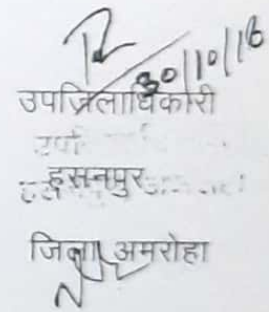 30/10/16
उपजिलाधिकारी
हसनपुर
जिला अमरोहा